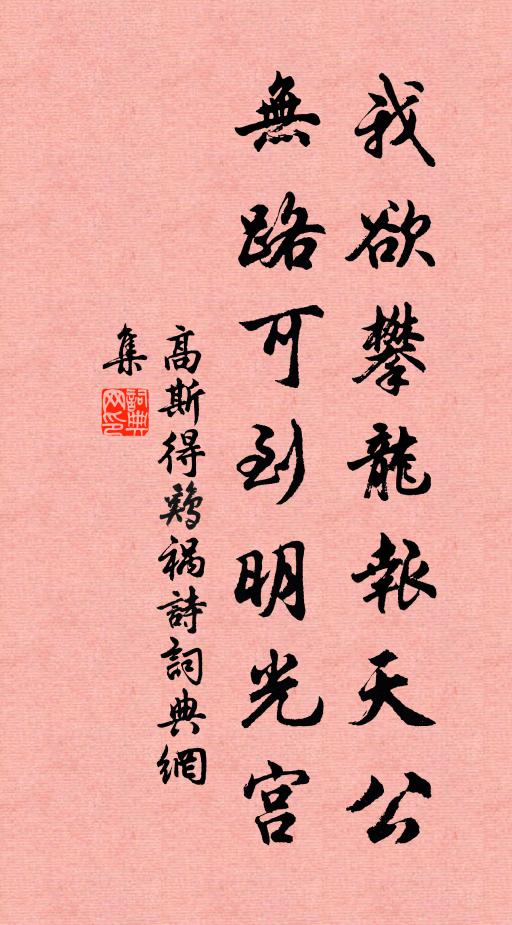 我欲攀龍報天公
無路可到明光宮
高斯得鷄禍詩詞典網
集
詞典網印